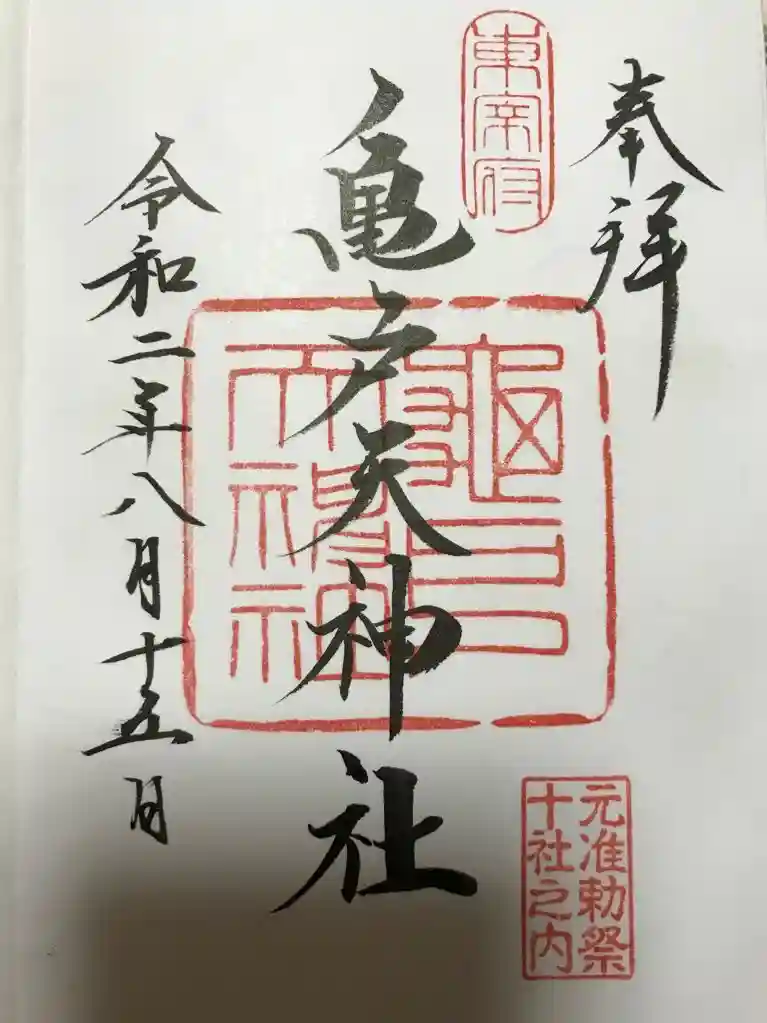 奉拝
東宰府
亀戸天神社
亀戸
天神社
元准勅祭
十社之内
令和二年八月十五日